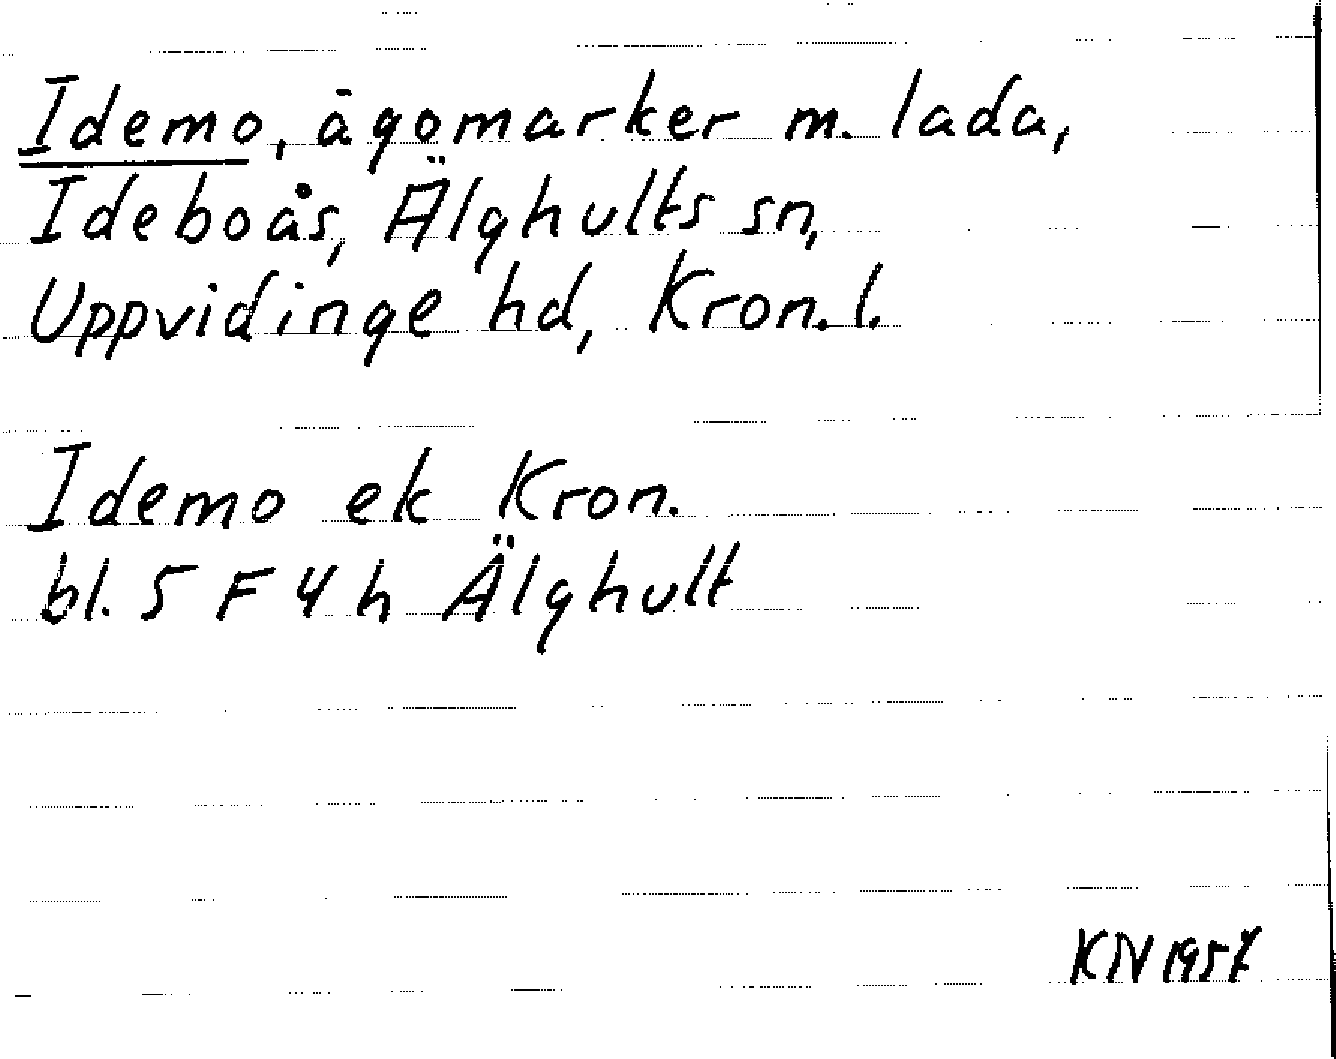 Idemo, ägomarker m. lada,
Ideboås, Älghults sn,
Uppvidinge hd, Kron. l.
Idemo ek Kron.
bl. 5 F 4 h Älghult
KN 1957